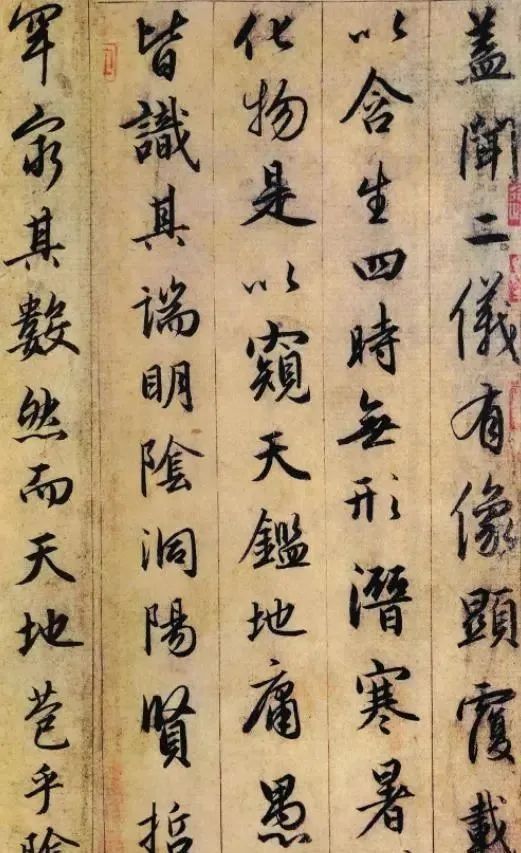 蓋聞二儀有像顯覆載
以含生四時無形潛寒暑
化物是以窺天鑑地庸愚
皆識其端明陰洞陽賢哲
罕窮其數然而天地苞乎陰